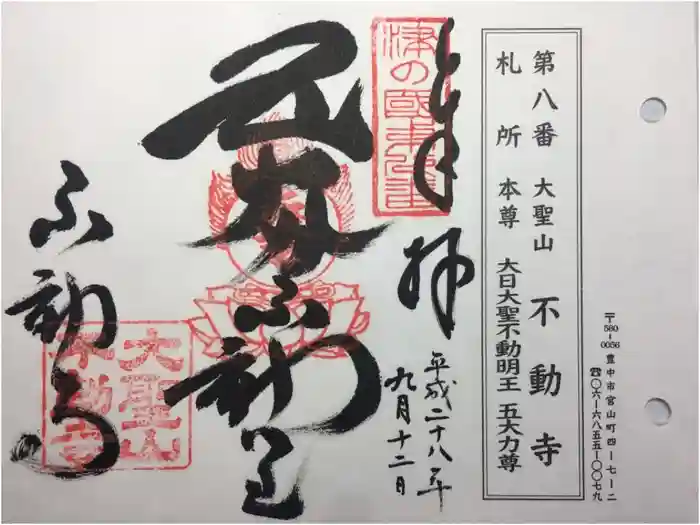 〒560-0056 豊中市宮山町四ー七ー二
☎〇六ー六八五五ー〇〇七九
第八番 大聖山 不動寺
札所 本尊 大日大聖不動明王 五大力尊
奉拝
平成二十八年
九月十二日
不動寺
大聖山
不動寺